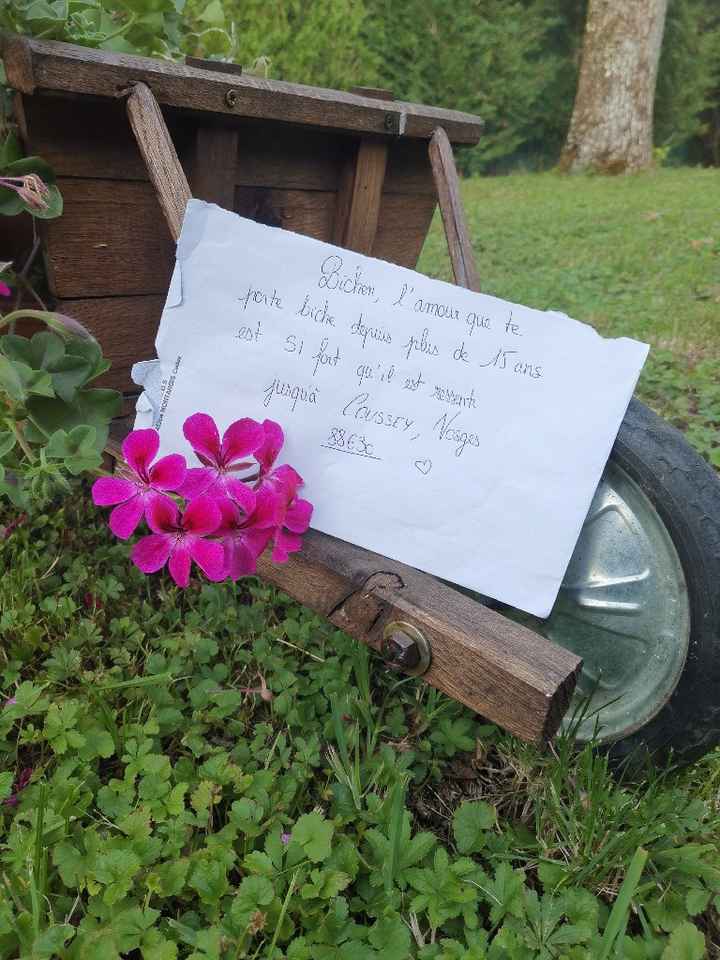 Bichon, l'amour que te
porte biche depuis plus de 15 ans
est SI fort qu'il est ressenti
jusqu'à COUSSEY, Vosges
88630 ♡
MONTARGIS Cedex